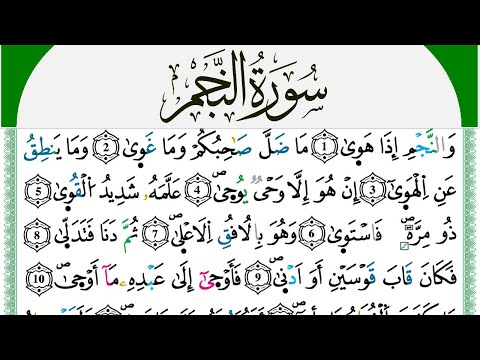 سُورَةُ النَّجْمِ
وَالنَّجْمِ إِذَا هَوٰىۙ ﴿1﴾ مَا ضَلَّ صَاحِبُكُمْ وَمَا غَوٰىۚ ﴿2﴾ وَمَا يَنطِقُ
عَنِ الْهَوٰىۗ ﴿3﴾ إِنْ هُوَ إِلَّا وَحْىٌ يُوحٰىۙ ﴿4﴾ عَلَّمَهُۥ شَدِيدُ الْقُوٰىۙ ﴿5﴾
ذُو مِرَّةٍ ۖ فَاسْتَوٰىۙ ﴿6﴾ وَهُوَ بِالْأُفُقِ الْأَعْلٰىۗ ﴿7﴾ ثُمَّ دَنَا فَتَدَلّٰىۙ ﴿8﴾
فَكَانَ قَابَ قَوْسَيْنِ أَوْ أَدْنٰىۚ ﴿9﴾ فَأَوْحٰىٓ إِلٰى عَبْدِهِۦ مَآ أَوْحٰىۗ ﴿10﴾